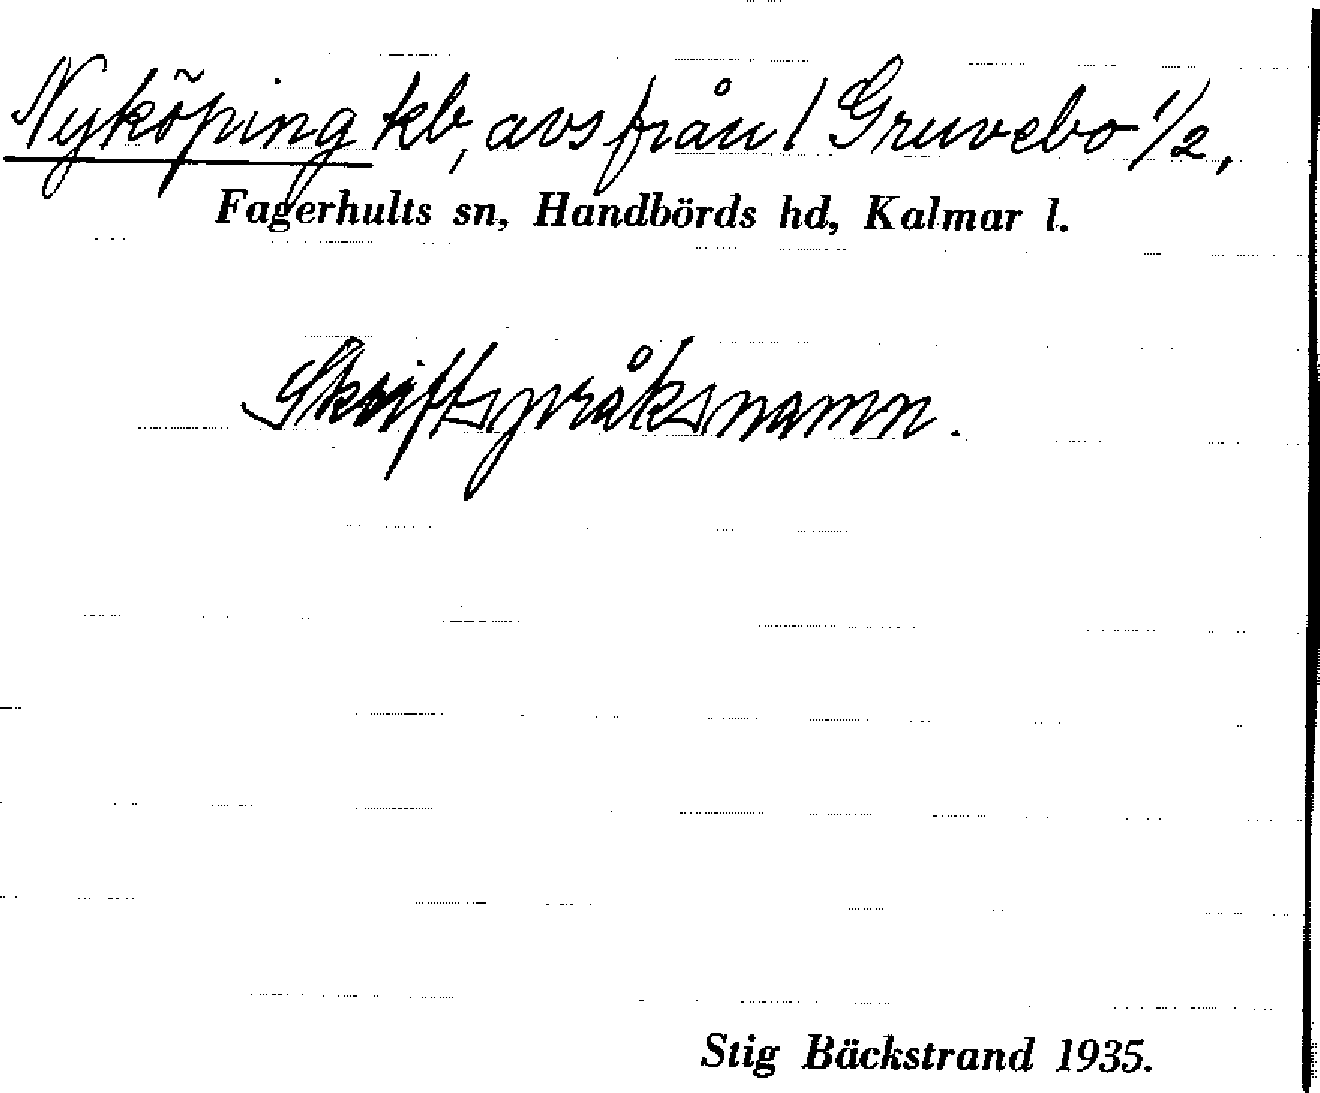 Nyköping kb, avs från 1 Gruvebo 1/2,
Fagerhults sn, Handbörds hd, Kalmar l.
Skriftspråksnamn.
Stig Bäckstrand 1935.